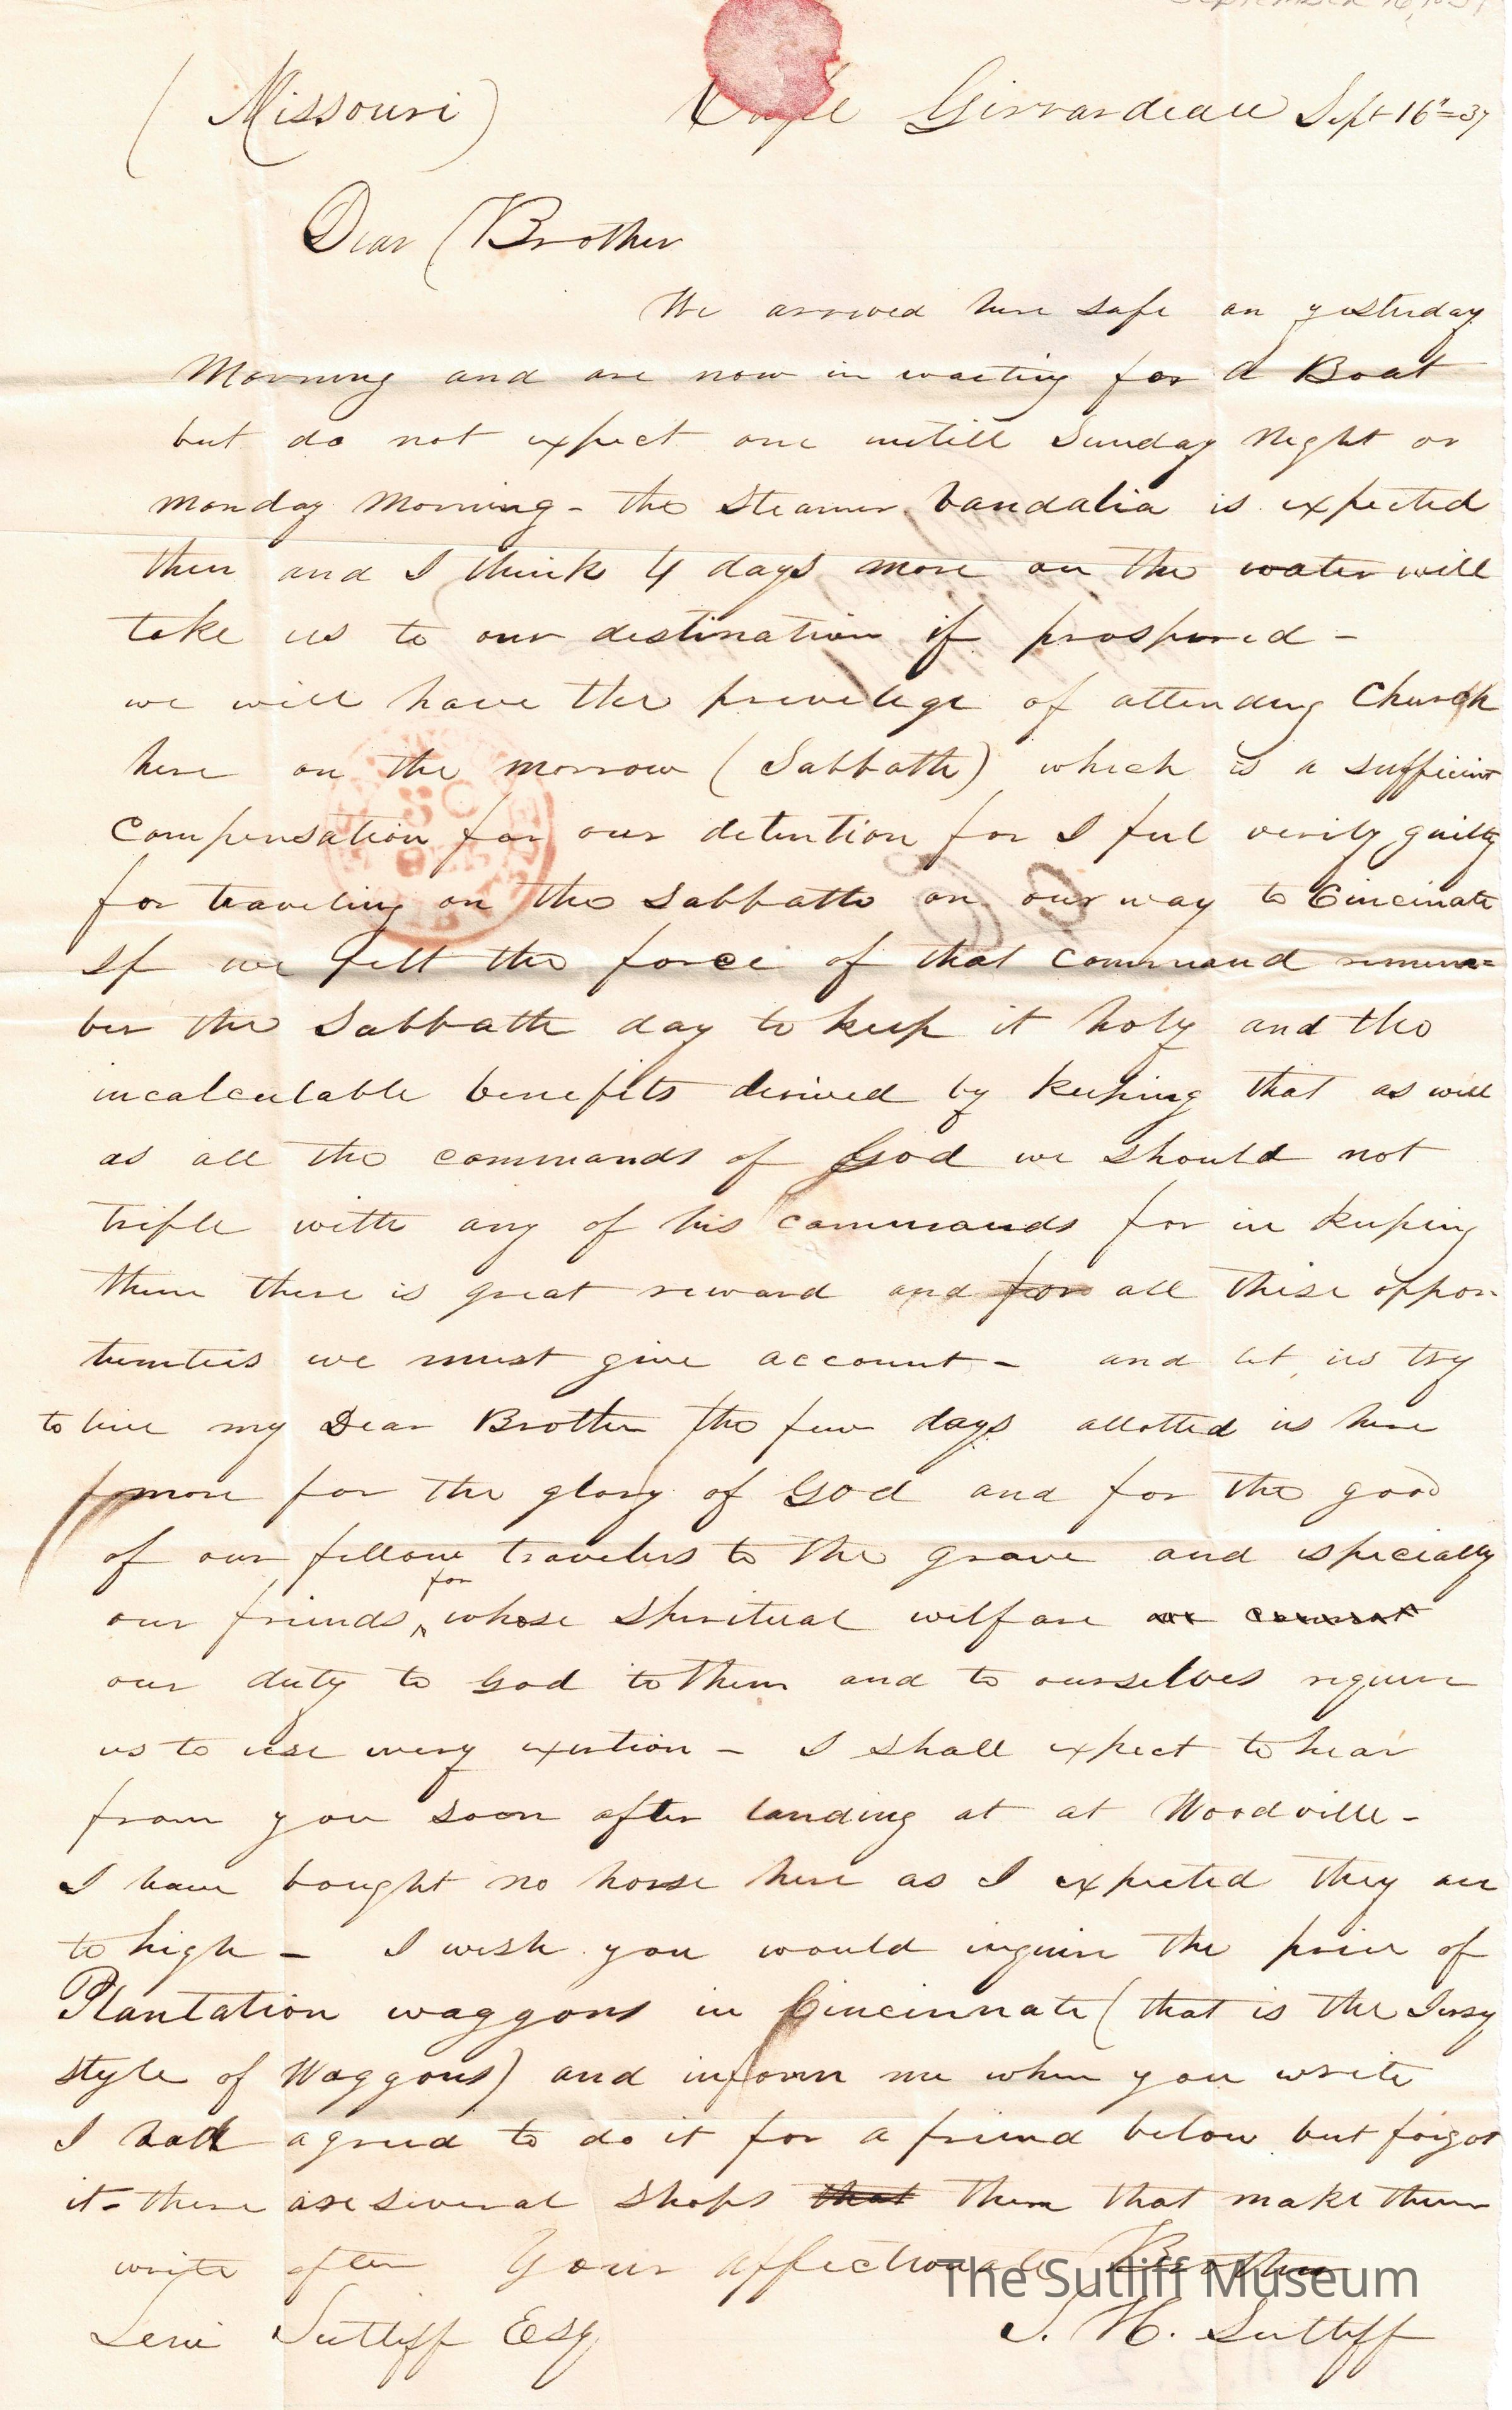 September 16, 1837
(Missouri) Cape Girrardeau Sept 16"=37
Dear Brother
We arrived here safe on yesterday
Morning and are now in waiting for a Boat
but do not expect one untill Sunday Night or
monday Morning - the Steamer Vandalia is expected
then and I think 4 days more on the water will
take us to our destination if prospered -
we will have the privelege of attending Church
here on the morrow (Sabbath) which is a sufficient
compensation for our detention for I feel verily guilty
for traveling on the Sabbath on our way to Cincinate
If we felt the force of that command remem=
ber the Sabbath day to keep it holy and the
incalculable benefits derived by keeping that as well
as all the commands of God we should not
trifle with any of his commands for in keeping
them there is great reward and for all these oppor-
tunities we must give account - and let us try
to live my Dear Brother the few days allotted us here
more for the glory of God and for the good
of our fellow travelers to the grave and especially
our friends, for whose Spiritual welfare we cannot
our duty to God to them and to ourselves require
us to use every exertion - I shall expect to hear
from you soon after landing at at Woodville -
I have bought no horse here as I expected they are
to high - I wish you would inquire the price of
Plantation waggons in Cincinnate (that is the Jersy
style of Waggons) and inform me when you write
I had agreed to do it for a friend below but forgot
it - there are several shops that them that make them
write often Your affectionate Brother
The Sutliff Museum
Levi Sutliff Esq S. H. Sutliff